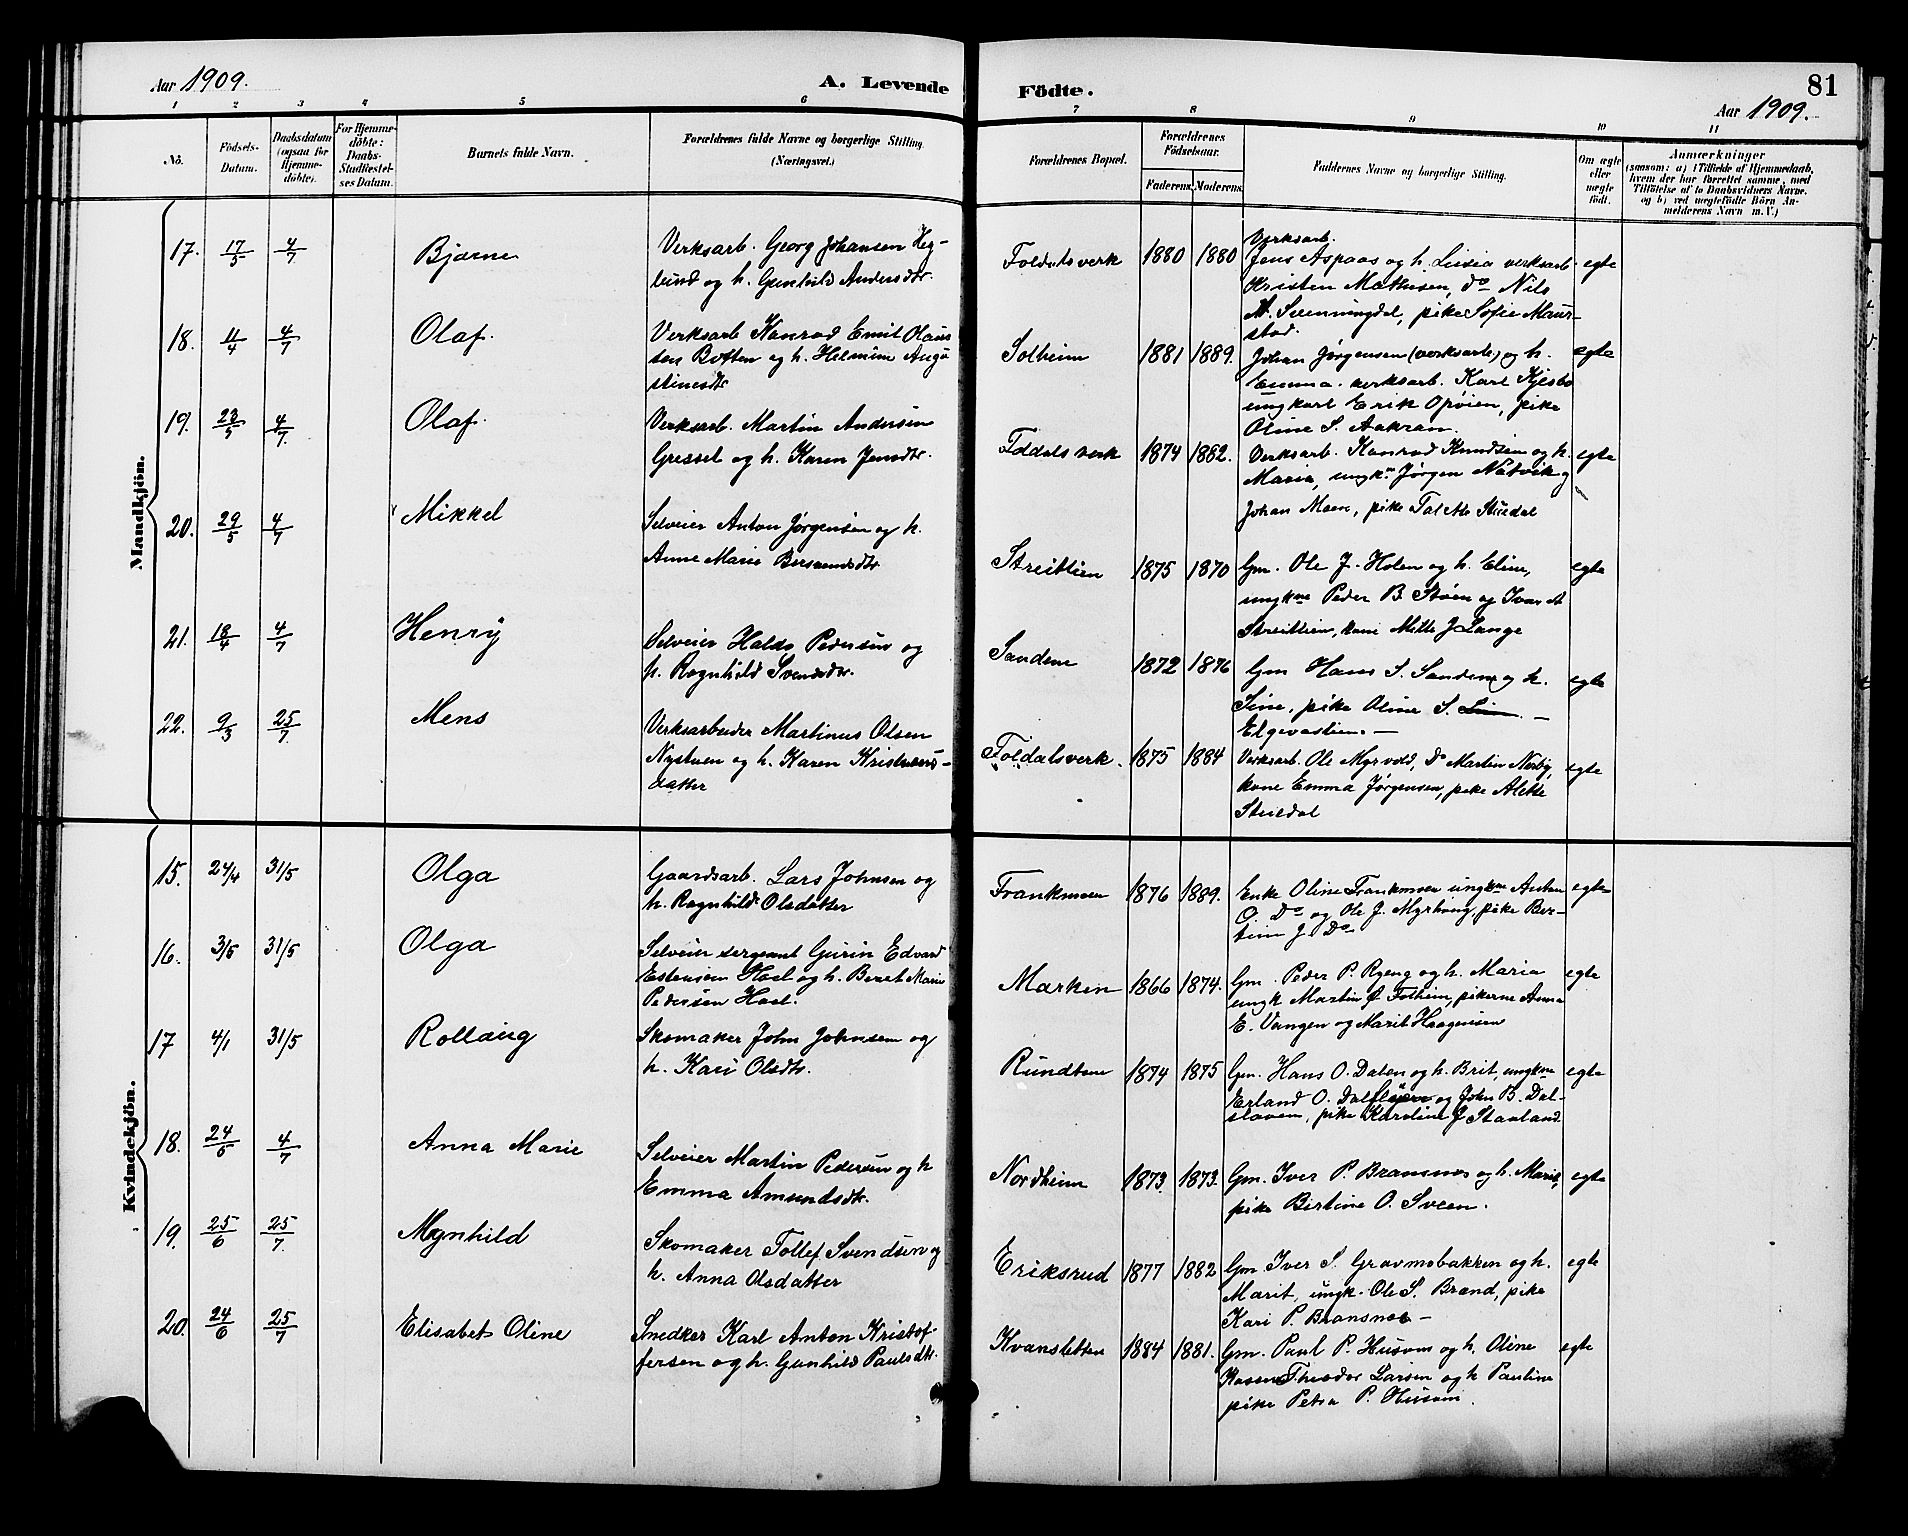 Aar 1909.
A. Levende
Födte.
81
Aar 1909.
1 2 3 4 5 6 7 8 9 10 11
No.
Födsels-
Datum.
Daabsdatum
(ogsaa for
Hjemme-
döbte).
For Hjemme-
döbte:
Daabs-
Stadfæstel-
ses Datum.
Barnets fulde Navn.
Forældrenes fulde Navne og borgerlige Stilling
(Næringsvei.)
Forældrenes Bopæl.
Forældrenes
Födselsaar.
Faderens.
Moderens.
Faddernes Navne og borgerlige Stilling.
Om ægte
eller
uægte
födt.
Anmærkninger
(saasom: a) i Tilfælde af Hjemmedaab,
hvem der har forrettet samme, med
Tilföielse af to Daabsvidners Navne,
og b) ved uægtefödte Börn An-
melderens Navn m. V.)
Mandkjön.
17. 17/5 4/7 Bjarne
Verksarb. Georg Johansen Heg-
lund og h. Gunhild Andersdtr.
Foldalsverk 1880 1880
Verksarb.
Jens Aspaas og h. Lucia verksarb
Kristen Mathisen, do Nils
M. Svenningdal, pike Sofie Maur-
stad.
egte
18. 11/4 4/7 Olaf.
Verksarb Konrad Emil Olaus
sen Botten og h. Helmine Augu
stinusdtr
Solheim 1881 1889.
Johan Jørgensen (verksarb.) og h.
Emma. verksarb. Karl Kjesbo
ungkarl Erik Opøien, pike
Oline S. Aakran.
egte
19. 23/5 4/7 Olaf.
Verksarb. Martin Andersen
Gressel og h. Karen Jensdtr.
Foldalsverk 1874 1882.
Verksarb. Konrad Knudsen og h.
Maria, ungkn Jørgen Natvik og
Johan Moen, pike Talette Stuedal
egte
20. 29/5 4/7 Mikkel
Selveier Anton Jørgensen og h.
Anne Marie
Streitlien 1875 1870
Gm. Ole J. Holen og h. Eline,
ungkne Peder B. Støen og Ivar A
Streitlien, kone Mette J Lange
egte
21. 18/4 4/7 Henry
Selveier Haldo Pedersen og
h. Ragnhild Svendsdtr.
Sandene 1872 1876
Gm Hans S. Sandene og h.
Sine, pike Oline S.
Elgevastien.
egte
22. 9/3 25/7. Mens
Verksarbeider Martinus Olsen
Nystuen og h. Karen Kristians-
datter
Foldalsverk. 1875 1884
Verksarb. Ole Myrvold, Do Martin Nesby,
kone Emma Jørgensen, pike Alette
Stuedal
egte
Kvindekjön.
15. 24/4 31/5 Olga
Gaardsarb. Lars Johnsen og
h. Ragnhild Olsdatter
Frankmoen 1876 1889.
Enke Oline Frankmoen ungkne Anton
O. Do og Ole J. Myrhaug, pike Ber-
tine J. Do
egte
16. 3/5 31/5 Olga
Selveier sergeant Gurin Edvard
Estensen Hoel og h. Beret Marie
Pedersen Hoel.
Marken 1866 1874.
Gm. Peder P. Ryeng og h. Maria
ungk Martin Ø Folheim, pikerne Anna
E. Vangen og Marit Haagensen
egte
17 4/1 31/5 Rollaug
Skomaker John Johnsen og
h. Kari Olsdtr.
Rundtone 1874 1875
Gm. Hans O. Dalen og h. Brit, ungkne
Erland O. Dalsløien og John B. Dal-
slaven, pike Karoline J Staaland
egte
18. 24/6 4/7 Anna Marie
Selveier Martin Pedersen og h
Emma Amundsdtr.
Nordheim 1873. 1873.
Gm. Iver P. Bransnes og h. Marit,
pike Birtine O. Sveen.
egte
19. 25/6 25/7. Magnhild
Skomaker Tollef Svendsen og
h. Anna Olsdatter
Eriksrud 1877 1882
Gm Iver S. Gravmobakken og h.
Marit, ungk. Ole S. Brænd, pike
Kari P. Bransnes
egte
20. 24/6 25/7 Elisabet Oline
Snedker Karl Anton Kristof-
fersen og h. Gunhild Paulsdtr.
Kvansletten 1884 1881.
Gm. Paul P. Husom og h. Oline
Theodor Larsen og h Pauline
pike Petra P. Husom.
egte